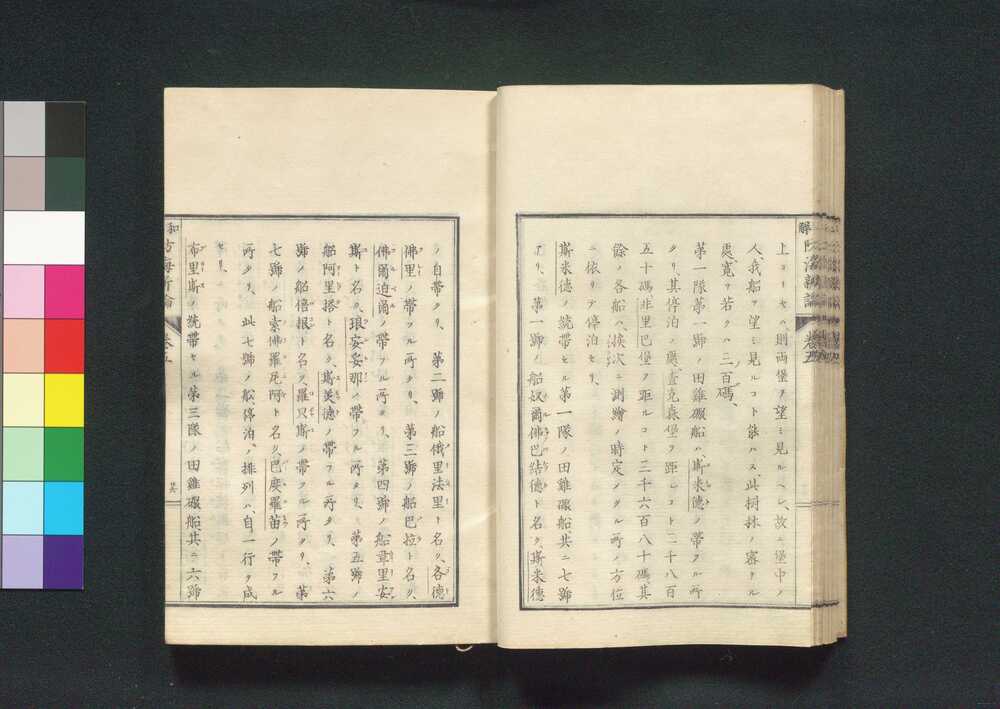 上ヨリセハ、則兩堡ヲ望ミ見ルヘシ、故ニ堡中ノ
人、我船ヲ望ミ見ルコト能ハス、此樹林ノ密ナル
處寬ヲ若クハ三百碼、
第一隊第一號ノ田雞礮船ハ、斯米德ノ帶フル所
タリ、其停泊ノ處、查克森堡ヲ距ルコト二千八百
五十碼、非里巴堡ヲ距ルコト三千六百八十碼、其
餘ノ各船ハ、挨次ニ測繪ノ時定メタル所ノ方位
ニ依リテ停泊セリ、
斯米德ノ統帶セル第一隊ノ田雞礮船、共ニ七號
アリ、第一號ノ船奴爾佛巴結德ト名ク、斯米德
ノ自帶タリ、第二號ノ船俄里法里ト名ク、各德
佛里ノ帶フル所タリ、第三號ノ船巴拉ト名ク、
佛爾迫爾ノ帶フル所タリ、第四號ノ船韋里安
斯ト名ク、琅安妥那ノ帶フル所タリ、第五號ノ
船阿里搭ト名ク、斯美德ノ帶フル所タリ、第六
號ノ船倍根ト名ク、羅只斯ノ帶フル所タリ、第
七號ノ船索佛羅尼阿ト名ク、巴度羅笛ノ帶フル
所タリ、此七號ノ船、停泊ノ排列ハ、自一行ヲ成
セリ、
布里斯ノ統帶セル第三隊ノ田雞礮船、共ニ六號
卷五